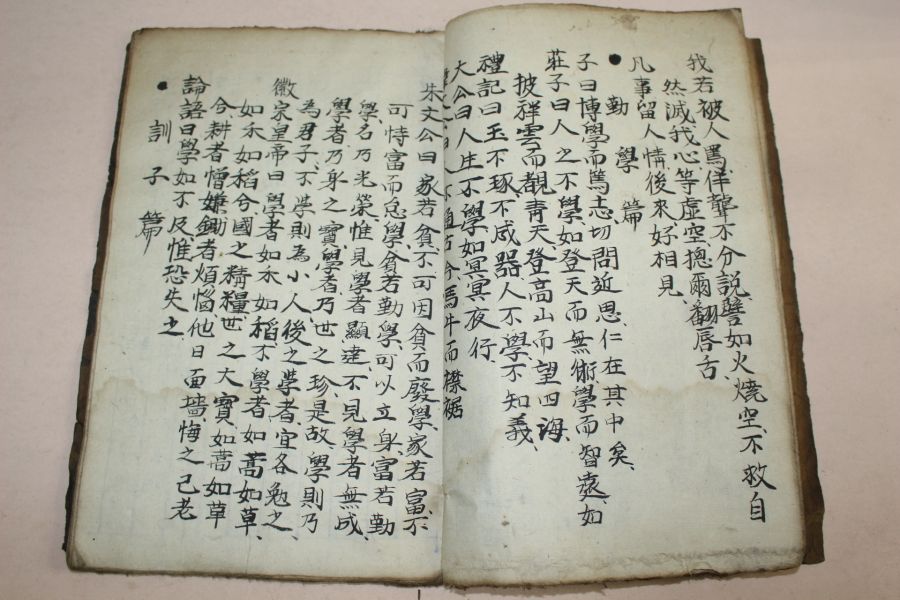 我若被人罵佯聾不分說譬如火燒空不救自
然滅我心等虛空摠爾翻唇舌
凡事留人情後來好相見
勤學篇
子曰博學而篤志切問近思仁在其中矣
莊子曰人之不學如登天而無術學而智遠如
披祥雲而覩靑天登高山而望四海
禮記曰玉不琢不成器人不學不知義
大公曰人生不學如冥冥夜行
人不通古今馬牛而襟裾
朱文公曰家若貧不可因貧而廢學家若富不
可恃富而怠學貧若勤學可以立身富若勤
學名乃光榮惟見學者顯達不見學者無成
學者乃身之寶學者乃世之珍是故學則乃
為君子不學則為小人後之學者宜各勉之
徽宗皇帝曰學者如禾如稻不學者如蒿如草
如禾如稻兮國之精糧世之大寶如蒿如草
兮耕者憎嫌鋤者煩惱他日面墻悔之已老
論語曰學如不及惟恐失之
訓子篇